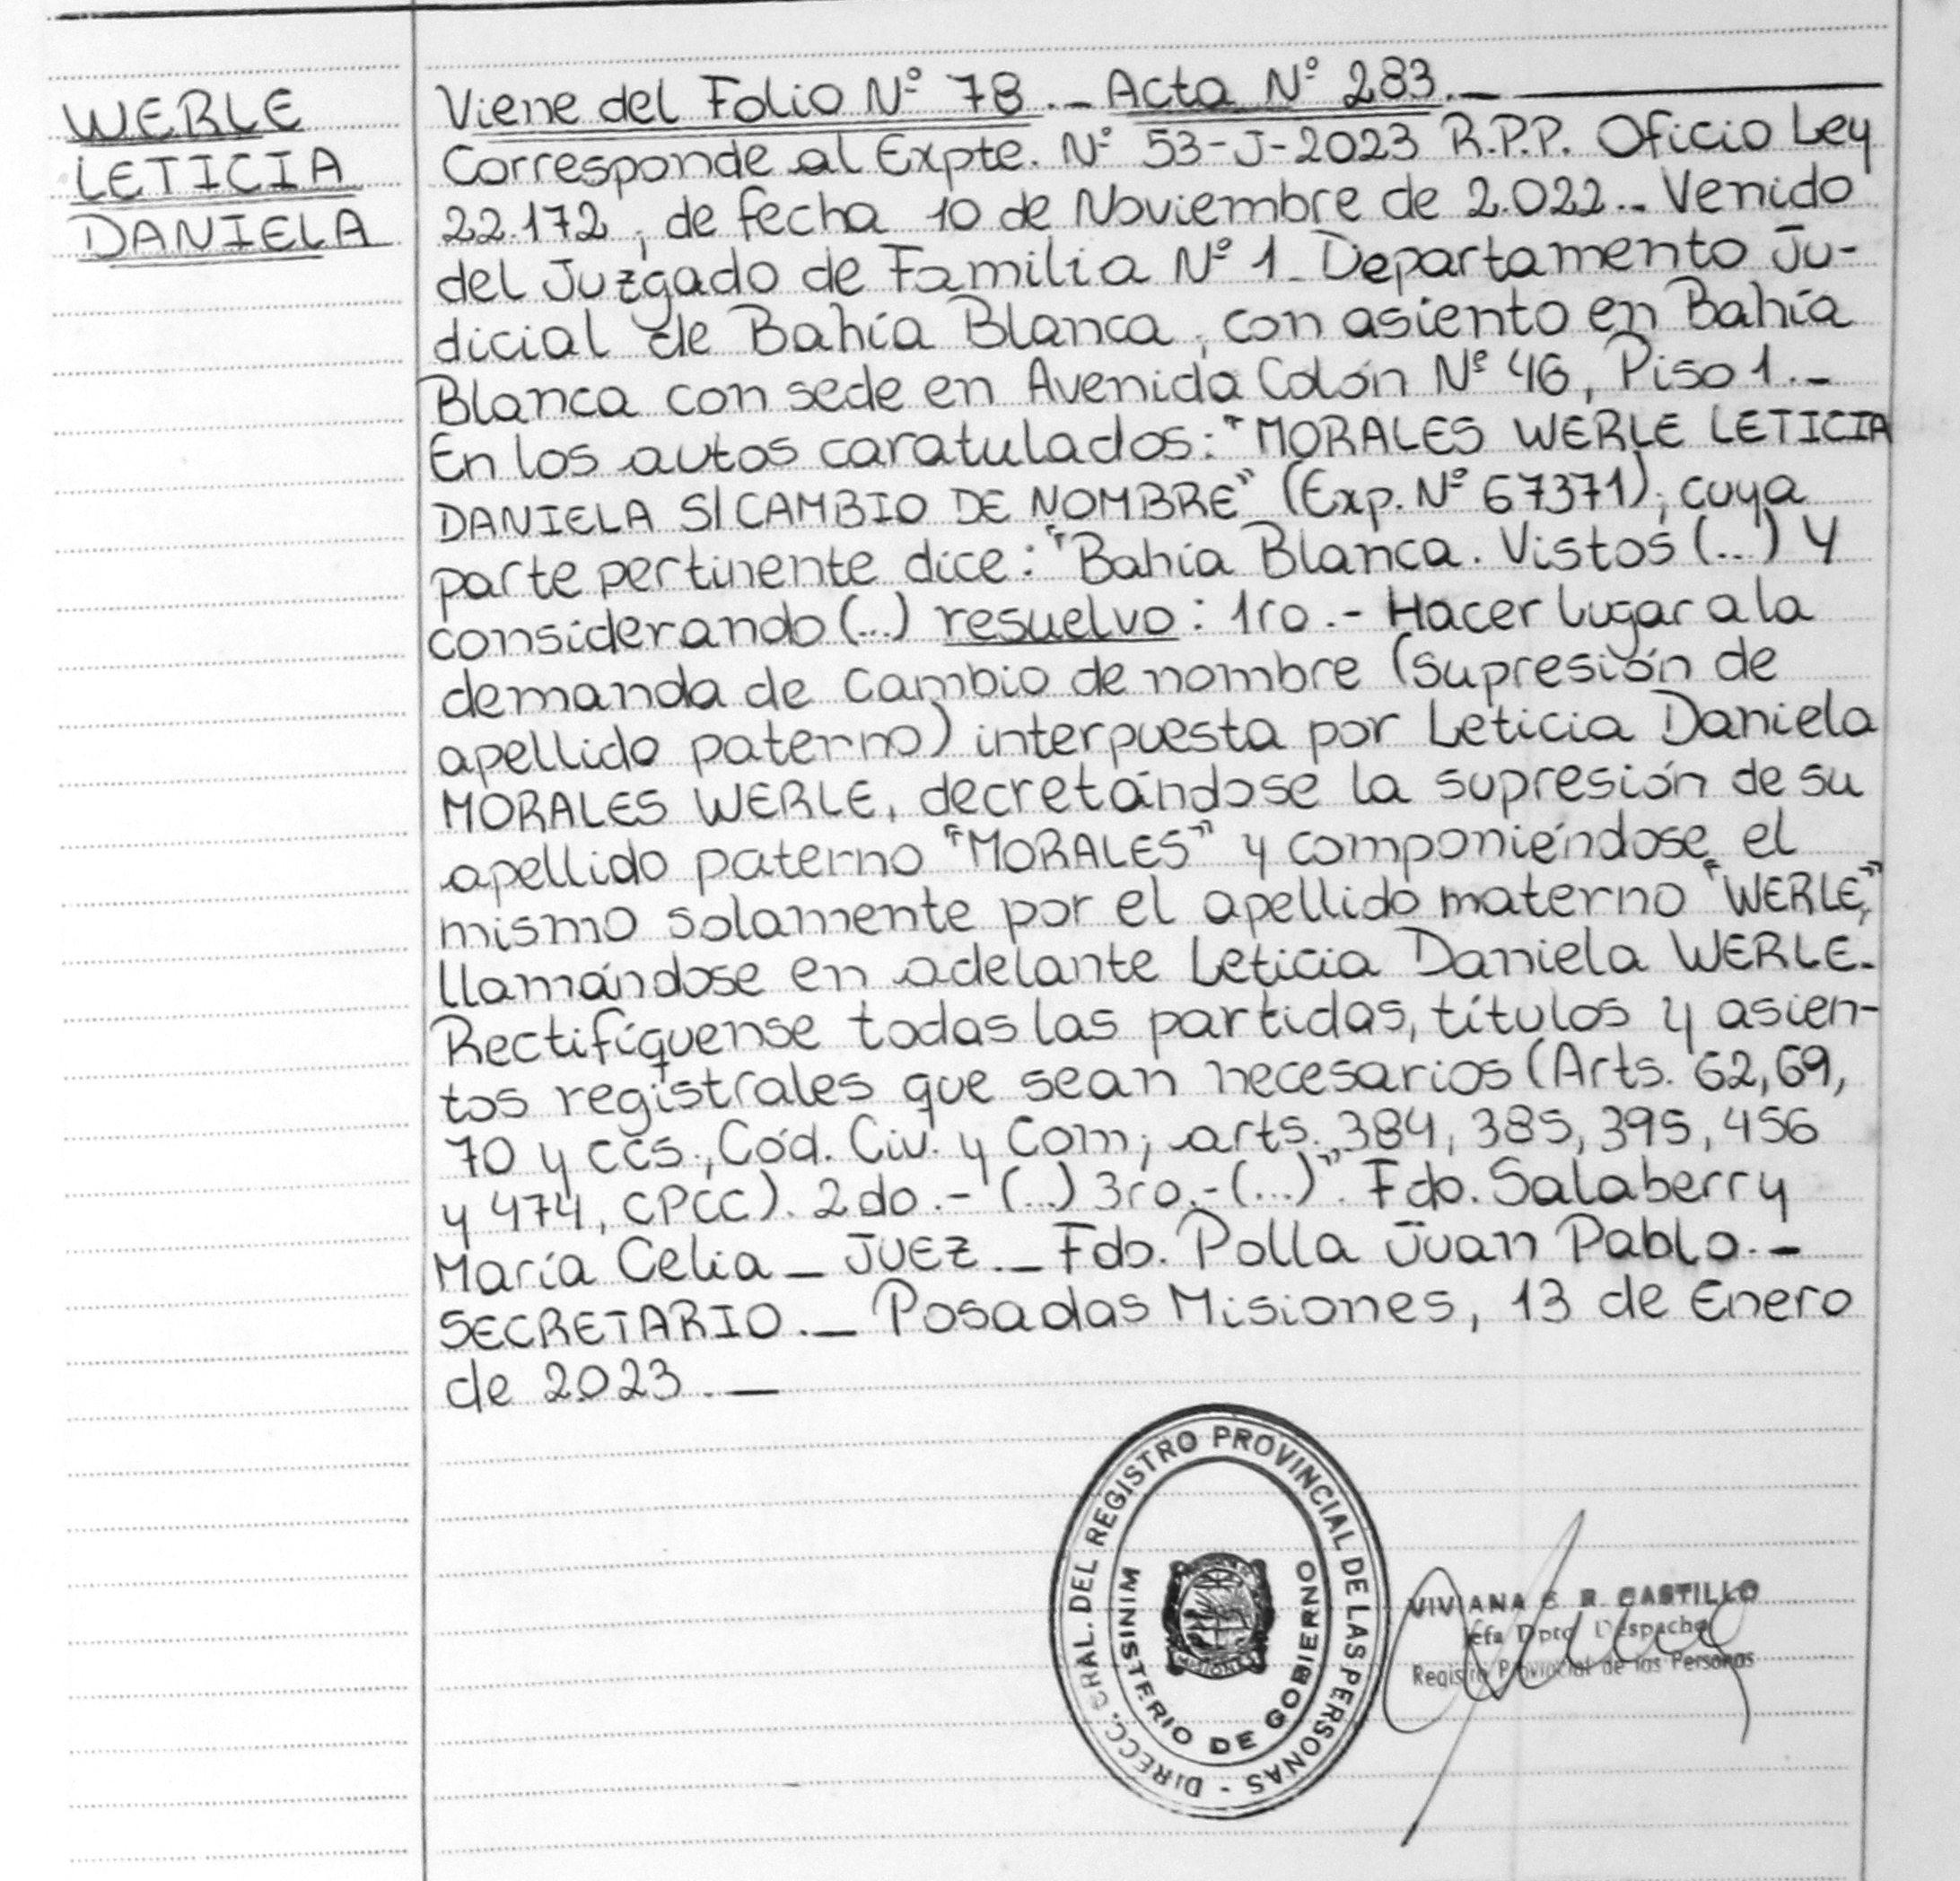 WERLE
LETICIA
DANIELA
Viene del Folio Nº 78 ._ Acta Nº 283._
Corresponde al Expte. Nº 53-J-2023 R.P.P. Oficio Ley
22.172, de fecha 10 de Noviembre de 2.022._ Venido
del Juzgado de Familia Nº 1_ Departamento Ju-
dicial de Bahía Blanca, con asiento en Bahía
Blanca con sede en Avenida Colón Nº 46, Piso 1._
En los autos caratulados: "MORALES WERLE LETICIA
DANIELA S/CAMBIO DE NOMBRE" (Exp. Nº 67371), cuya
parte pertinente dice: "Bahía Blanca. Vistos (...) Y
considerando (...) resuelvo: 1ro.- Hacer lugar a la
demanda de cambio de nombre (supresión de
apellido paterno) interpuesta por Leticia Daniela
MORALES WERLE, decretándose la supresión de su
apellido paterno "MORALES" y componiéndose el
mismo solamente por el apellido materno "WERLE",
llamándose en adelante Leticia Daniela WERLE.
Rectifíquense todas las partidas, títulos y asien-
tos registrales que sean necesarios (Arts. 62, 69,
70 y ccs., Cód. Civ. y Com; arts. 384, 385, 395, 456
y 474, CPCC). 2do.- (...) 3ro.- (...)". Fdo. Salaberry
María Celia _ JUEZ._ Fdo. Polla Juan Pablo.-
SECRETARIO._ Posadas Misiones, 13 de Enero
de 2023._
DIRECC. GRAL. DEL REGISTRO PROVINCIAL DE LAS PERSONAS -
MINISTERIO DE GOBIERNO
MISIONES
VIVIANA R. CASTILLO
Jefa Dpto Despacho
Registro Provincial de las Personas